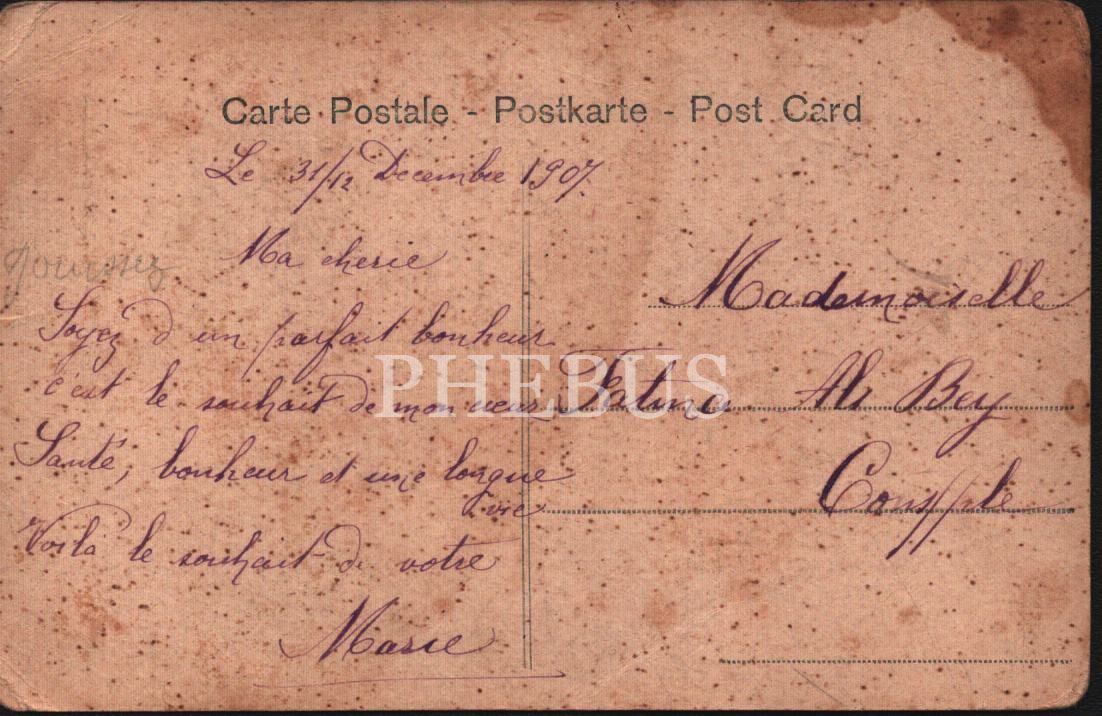 Carte Postale - Postkarte - Post Card
Le 31/12 Decembre 1907.
Ma cherie
Soyez d un parfait bonheur
c'est le souhait de mon cœur
Santé, bonheur et une longue
vie
Voilà le souhait de votre
Marie
Mademoiselle
Fatma Ali Bey
Consple
PHEBUS